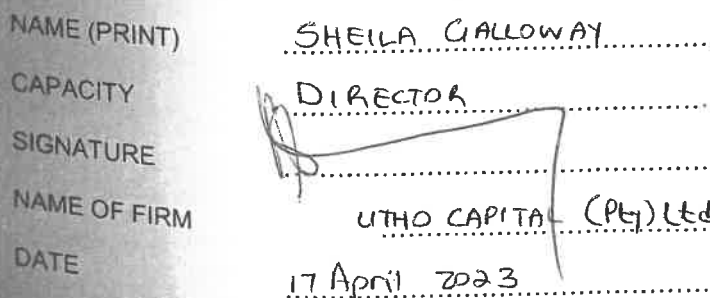 NAME (PRINT) SHEILA GALLOWAY
CAPACITY DIRECTOR
SIGNATURE
NAME OF FIRM UTHO CAPITAL (Pty) Ltd
DATE 17 April 2023